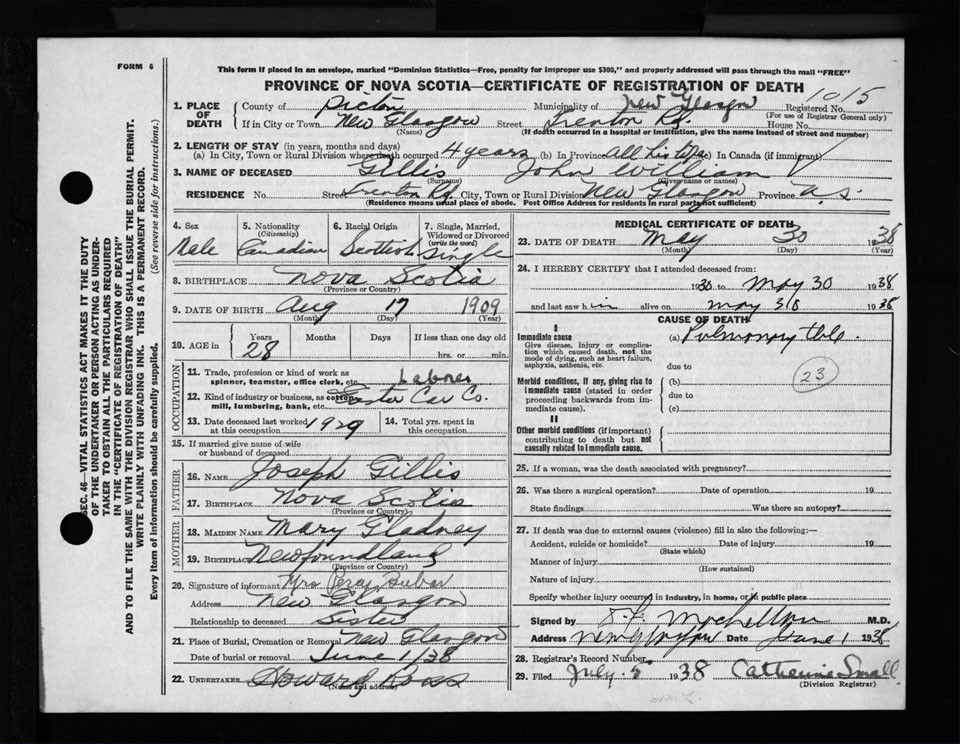 FORM 6
This form if placed in an envelope, marked "Dominion Statistics—Free, penalty for improper use $300," and properly addressed will pass through the mail "FREE"
PROVINCE OF NOVA SCOTIA—CERTIFICATE OF REGISTRATION OF DEATH
1. PLACE OF DEATH
County of Pictou Municipality of New Glasgow Registered No. 1015
(For use of Registrar General only)
If in City or Town New Glasgow Street Trenton Rd. House No.
(Name) (If death occurred in a hospital or institution, give the name instead of street and number)
2. LENGTH OF STAY (in years, months and days)
(a) In City, Town or Rural Division where death occurred 4 years (b) In Province all his life (c) In Canada (if immigrant)
3. NAME OF DECEASED Gillis John William
(Surname) (Given name or names)
RESIDENCE No. Street Trenton Rd. City, Town or Rural Division New Glasgow Province N.S.
(Residence means usual place of abode. Post Office Address for residents in rural parts not sufficient)
4. Sex Male
5. Nationality (Citizenship) Canadian
6. Racial Origin Scottish
7. Single, Married, Widowed or Divorced (write the word) Single
8. BIRTHPLACE Nova Scotia
(Province or Country)
9. DATE OF BIRTH Aug 17 1909
(Month) (Day) (Year)
10. AGE in Years 28 Months Days If less than one day old
hrs. or min.
OCCUPATION
11. Trade, profession or kind of work as spinner, teamster, office clerk, etc. Laborer
12. Kind of industry or business, as cotton mill, lumbering, bank, etc. Car Co.
13. Date deceased last worked at this occupation 1929
14. Total yrs. spent in this occupation
15. If married give name of wife or husband of deceased
FATHER
16. NAME Joseph Gillis
17. BIRTHPLACE Nova Scotia
(Province or Country)
MOTHER
18. MAIDEN NAME Mary Gladney
19. BIRTHPLACE Newfoundland
(Province or Country)
20. Signature of informant Mrs Percy
Address New Glasgow
Relationship to deceased Sister
21. Place of Burial, Cremation or Removal New Glasgow
Date of burial or removal June 1/38
22. UNDERTAKER Howard Ross
(Name and address)
MEDICAL CERTIFICATE OF DEATH
23. DATE OF DEATH May 30 1938
(Month) (Day) (Year)
24. I HEREBY CERTIFY that I attended deceased from:
1930 to May 30 1938
and last saw him alive on May 30 1938
CAUSE OF DEATH
I
Immediate cause
Give disease, injury or complication which caused death, not the mode of dying, such as heart failure, asphyxia, asthenia, etc.
(a) Pulmonary tbc.
due to
Morbid conditions, if any, giving rise to immediate cause (stated in order proceeding backwards from immediate cause).
(b)
23
due to
(c)
II
Other morbid conditions (if important) contributing to death but not causally related to immediate cause.
25. If a woman, was the death associated with pregnancy?
26. Was there a surgical operation? Date of operation 19
State findings Was there an autopsy?
27. If death was due to external causes (violence) fill in also the following:—
Accident, suicide or homicide? Date of injury 19
(State which)
Manner of injury
(How sustained)
Nature of injury
Specify whether injury occurred in industry, in home, or in public place
Signed by M.D.
Address New Glasgow Date June 1 1938
28. Registrar's Record Number
29. Filed July 5 1938 Catherine Small
(Division Registrar)
SEC. 46—VITAL STATISTICS ACT MAKES IT THE DUTY
OF THE UNDERTAKER OR PERSON ACTING AS UNDER-
TAKER TO OBTAIN ALL THE PARTICULARS REQUIRED
IN THE "CERTIFICATE OF REGISTRATION OF DEATH"
AND TO FILE THE SAME WITH THE DIVISION REGISTRAR WHO SHALL ISSUE THE BURIAL PERMIT.
WRITE PLAINLY WITH UNFADING INK. THIS IS A PERMANENT RECORD.
Every item of information should be carefully supplied. (See reverse side for instructions.)